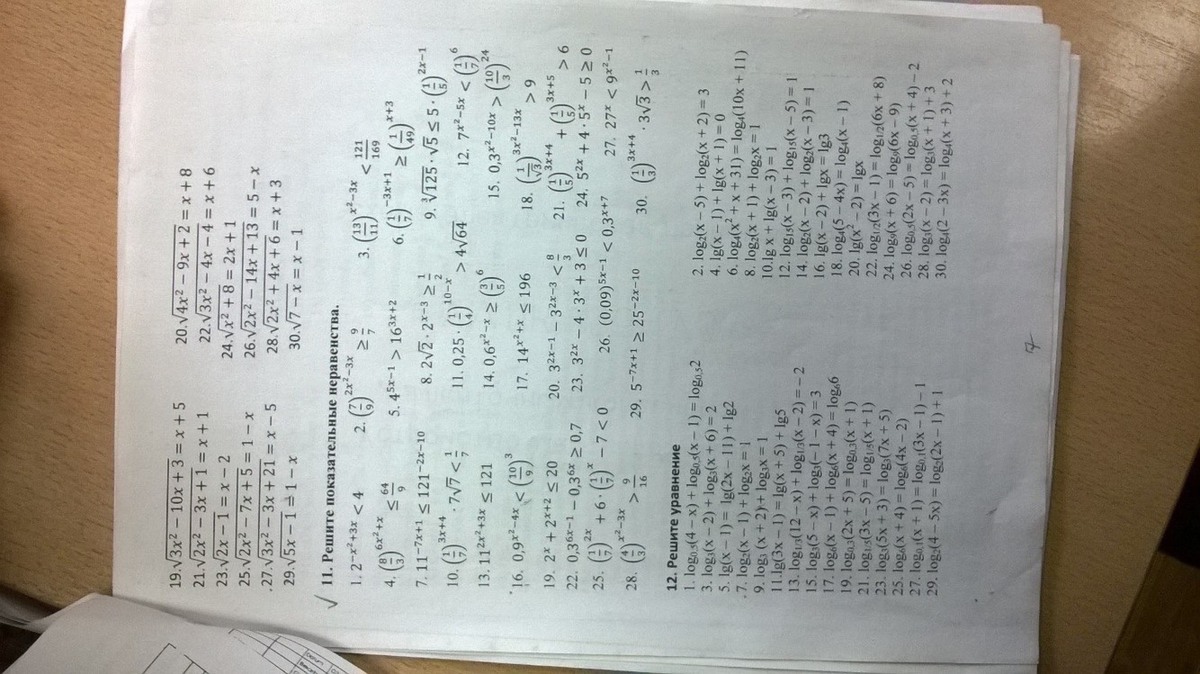 19.√(3x² − 10x + 3) = x + 5
20.√(4x² − 9x + 2) = x + 8
21.√(2x² − 3x + 1) = x + 1
22.√(3x² − 4x − 4) = x + 6
23.√(2x − 1) = x − 2
24.√(x² + 8) = 2x + 1
25.√(2x² − 7x + 5) = 1 − x
26.√(2x² − 14x + 13) = 5 − x
.27.√(3x² − 3x + 21) = x − 5
28.√(2x² + 4x + 6) = x + 3
29.√(5x − 1) = 1 − x
30.√(7 − x) = x − 1
√ 11. Решите показательные неравенства.
1. 2^(−x²+3x) < 4 2. (7/9)^(2x²−3x) ≥ 9/7 3. (13/11)^(x²−3x) < 121/169
4. (8/3)^(6x²+x) ≤ 64/9 5. 4^(5x−1) > 16^(3x+2) 6. (1/7)^(−3x+1) ≥ (1/49)^(x+3)
7. 11^(−7x+1) ≤ 121^(−2x−10) 8. 2√2 · 2^(x−3) ≥ 1/2 9. ∛125 · √5 ≤ 5 · (1/5)^(2x−1)
10. (1/7)^(3x+4) · 7√7 < 1/7 11. 0,25 · (1/4)^(10−x) > 4√64 12. 7^(x²−5x) < (1/7)^6
13. 11^(2x²+3x) ≤ 121 14. 0,6^(x²−x) ≥ (3/5)^6 15. 0,3^(x²−10x) > (10/3)^24
16. 0,9^(x²−4x) < (10/9)^3 17. 14^(x²+x) ≤ 196 18. (1/√3)^(3x²−13x) > 9
19. 2^x + 2^(x+2) ≤ 20 20. 3^(2x−1) − 3^(2x−3) < 8/3 21. (1/5)^(3x+4) + (1/5)^(3x+5) > 6
22. 0,3^(6x−1) − 0,3^(6x) ≥ 0,7 23. 3^(2x) − 4 · 3^x + 3 ≤ 0 24. 5^(2x) + 4 · 5^x − 5 ≥ 0
25. (1/7)^(2x) + 6 · (1/7)^x − 7 < 0 26. (0,09)^(5x−1) < 0,3^(x+7) 27. 27^x < 9^(x²−1)
28. (4/3)^(x²−3x) > 9/16 29. 5^(−7x+1) ≥ 25^(−2x−10) 30. (1/3)^(3x+4) · 3√3 > 1/3
12. Решите уравнение
1. log₀,₅(4 − x) + log₀,₅(x − 1) = log₀,₅2
2. log₂(x − 5) + log₂(x + 2) = 3
3. log₃(x − 2) + log₃(x + 6) = 2
4. lg(x − 1) + lg(x + 1) = 0
5. lg(x − 1) = lg(2x − 11) + lg2
6. log₄(x² + x + 31) = log₄(10x + 11)
.7. log₂(x − 1) + log₂x = 1
8. log₂(x + 1) + log₂x = 1
9. log₃ (x + 2) + log₃x = 1
10.lg x + lg(x − 3) = 1
11.lg(3x − 1) = lg(x + 5) + lg5
12. log₁₅(x − 3) + log₁₅(x − 5) = 1
13. log₁/₃(12 − x) + log₁/₃(x − 2) = − 2
14. log₂(x − 2) + log₂(x − 3) = 1
15. log₃(5 − x) + log₃(−1 − x) = 3
16. lg(x − 2) + lgx = lg3
17. log₆(x − 1) + log₆(x + 4) = log₆6
18. log₄(5 − 4x) = log₄(x − 1)
19. log₀,₃(2x + 5) = log₀,₃(x + 1)
20. lg(x² − 2) = lgx
21. log₁,₅(3x − 5) = log₁,₅(x + 1)
22. log₁/₂(3x − 1) = log₁/₂(6x + 8)
23. log₃(5x + 3) = log₃(7x + 5)
24. log₉(x + 6) = log₉(6x − 9)
25. log₆(x + 4) = log₆(4x − 2)
26. log₀,₅(2x − 5) = log₀,₅(x + 4) − 2
27. log₀,₁(x + 1) = log₀,₁(3x − 1) − 1
28. log₃(x − 2) = log₃(x + 1) + 3
29. log₅(4 − 5x) = log₅(2x − 1) + 1
30. log₄(2 − 3x) = log₄(x + 3) + 2
7